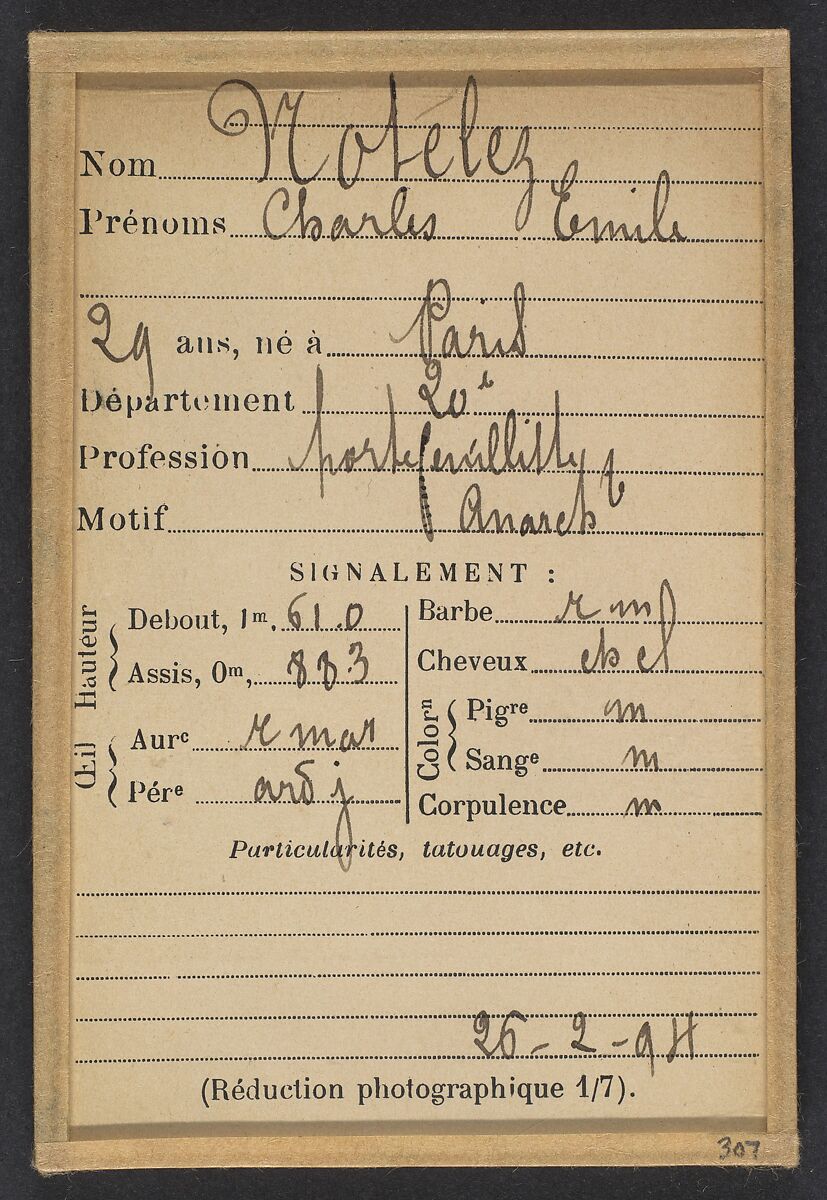 Nom Notelez
Prénoms Charles Emile
29 ans, né à Paris
Département 20e
Profession portefeuilliste
Motif Anarch
SIGNALEMENT :
Hauteur
Debout, 1m. 61.0
Assis, 0m, 883
Œil
Aurᵉ r mar
Pérᵉ
Barbe r m
Cheveux ch cl
Colorⁿ
Pigʳᵉ m
Sangᵉ m
Corpulence m
Particularités, tatouages, etc.
26-2-94
(Réduction photographique 1/7).
307